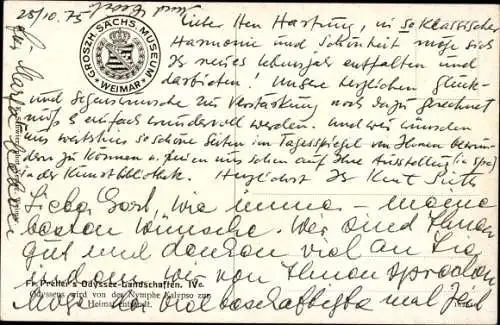 25/10.75
GROSZH. SÄCHS. MUSEUM
WEIMAR
Lieber Herr Hartung, in so klassischer
Harmonie und Schönheit möge sich
Ihr neues Lebensjahr entfalten und
darbieten! Unsere herzlichen Glück-
und Segenswünsche zur Verstärkung noch dazu gerechnet
muß es einfach wundervoll werden. Und wir wünschen
uns weiterhin so schöne Seiten im Tagesspiegel von Ihnen bewun-
dern zu können u. freuen uns schon auf Ihre Ausstellung
in der Kunstbibliothek. Herzlichst Ihr Kurt
Lieber wie immer - meine
besten Wünsche. Wir sind Ihnen
gut und denken viel an Sie
wir von Ihnen sprechen
Fr. Preller's Odyssee-Landschaften. IVc.
Odysseus wird von der Nymphe Kalypso zur
Heimat entsandt.
viel beschäftigte mal Zeit